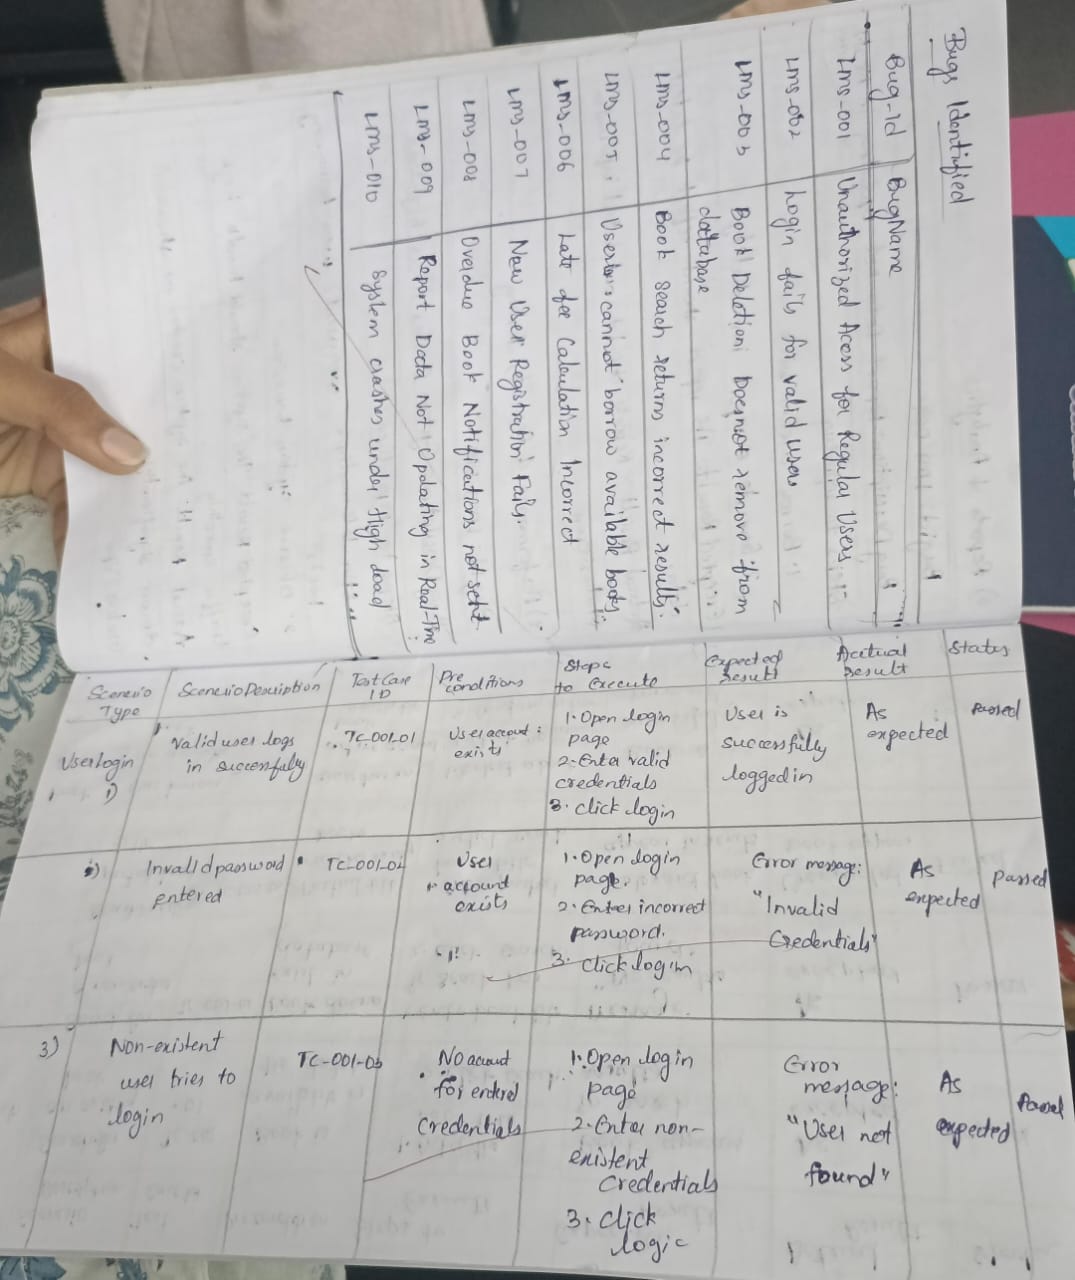 Bugs Identified
Bug-Id BugName
LMS-001 Unauthorized Acess for Regular Users
LMS-002 Login fails for valid users
LMS-003 Book Deletion Doesnot remove from
database
LMS-004 Book Search returns incorrect results.
LMS-005 cannot borrow available books.
LMS-006 Late fee Calculation Incorrect
LMS-007 New User Registration Fails.
LMS-008 Overdue Book Notifications not sent
LMS-009 Report Data Not Updating in Real-Time
LMS-010 System crashes under High Load
Scenerio Type
Scenerio Description
Test Case ID
Pre conditions
Steps to Execute
Expected Result
Acctual Result
Status
User login
1)
Valid user logs
in successfully
TC-001-01
User account
exists
1. Open login
page
2. Enter valid
credentials
3. click login
User is
successfully
logged in
As
expected
Passed
2)
Invalid password
entered
TC-001-02
User
account
exists
1. Open login
page.
2. Enter incorrect
password.
3. Click login
Error message:
"Invalid
Credentials"
As
expected
passed
3)
Non-existent
user tries to
login
TC-001-03
No account
for entered
credentials
1. Open login
page
2. Enter non-
existent
credentials
3. Click
logic
Error
message:
"User not
found"
As
expected
Passed